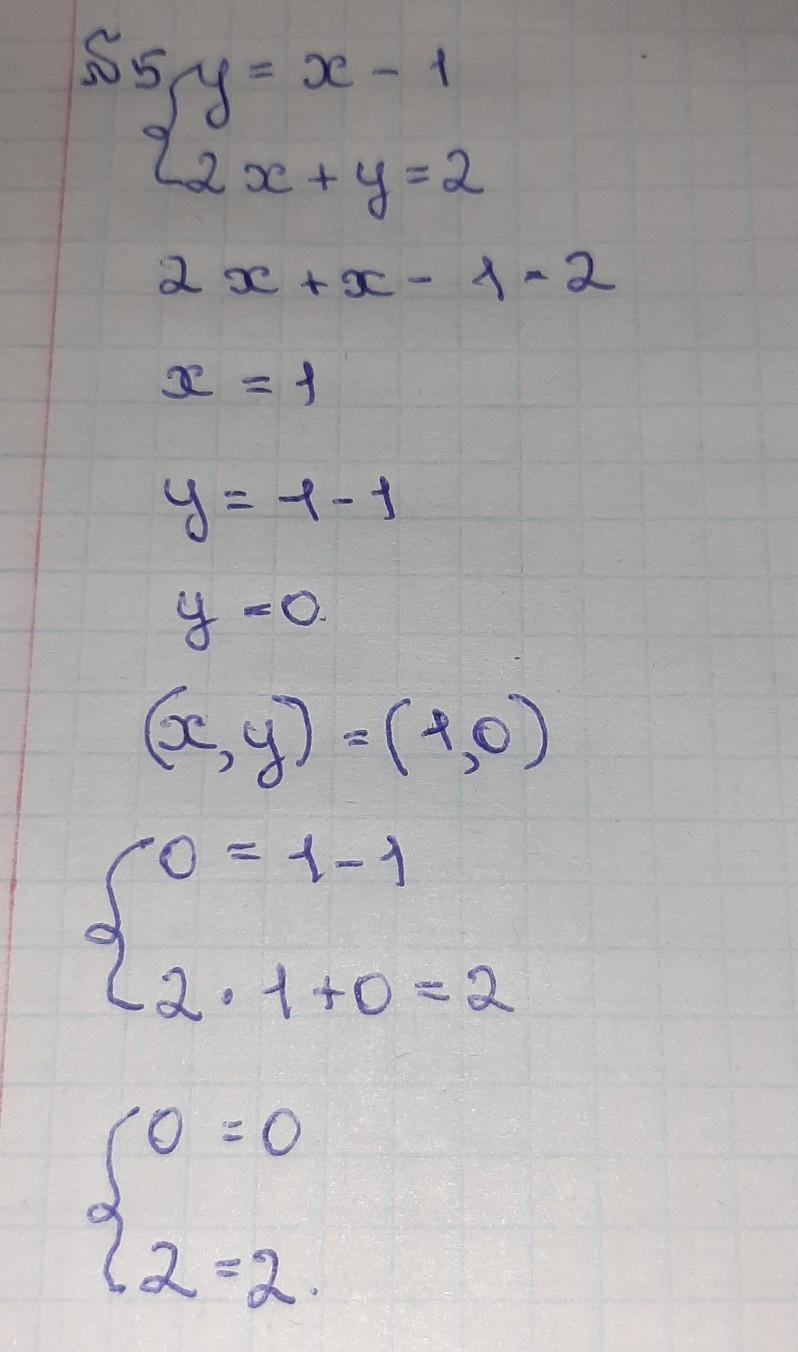 №5 { y = x - 1
2x + y = 2
2x + x - 1 = 2
x = 1
y = 1 - 1
y = 0.
(x, y) = (1,0)
{ 0 = 1 - 1
2 · 1 + 0 = 2
{ 0 = 0
2 = 2.